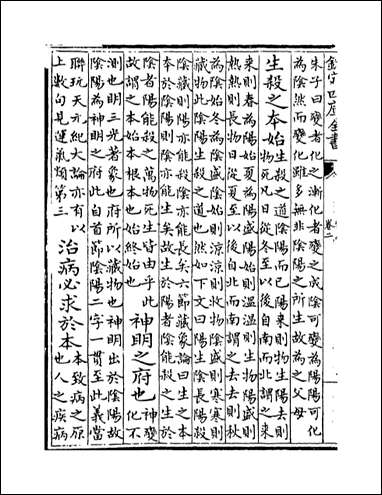 欽定四庫全書
卷二
朱子曰變者化之漸化者變之成陰可變為陽陽可化
為陰然而變化雖多無非陰陽之所生故為之父母
生殺之本始
生殺之道陰陽而已陽來則物生陽去則
物死凡日從冬至以後自南而北謂之來
來則春為陽始夏為陽盛陽始則溫溫則生物陽盛則
熱熱則長物日從夏至以後自北而南謂之去去則秋
為陰始冬為陰盛陰始則涼涼則收物陰盛則寒寒則
藏物此陰陽生殺之道也然如下文曰陽生陰長陽殺
陰藏則陽亦能殺陰亦能長矣六節藏象論曰生之本
本於陰陽則陰亦能生矣故生於陽者陰能殺之生於
陰者陽能殺之萬物死生皆由乎此
故謂之本始本根本也始終始也
神明之府也
神變
化不
測也明三光著象也府所以藏物也神明出於陰陽故
陰陽為神明之府此自首節陰陽二字一貫至此義當
聯玩天元紀大論亦有以
上數句見運氣類第三
治病必求於本
本致病之原
也人之疾病